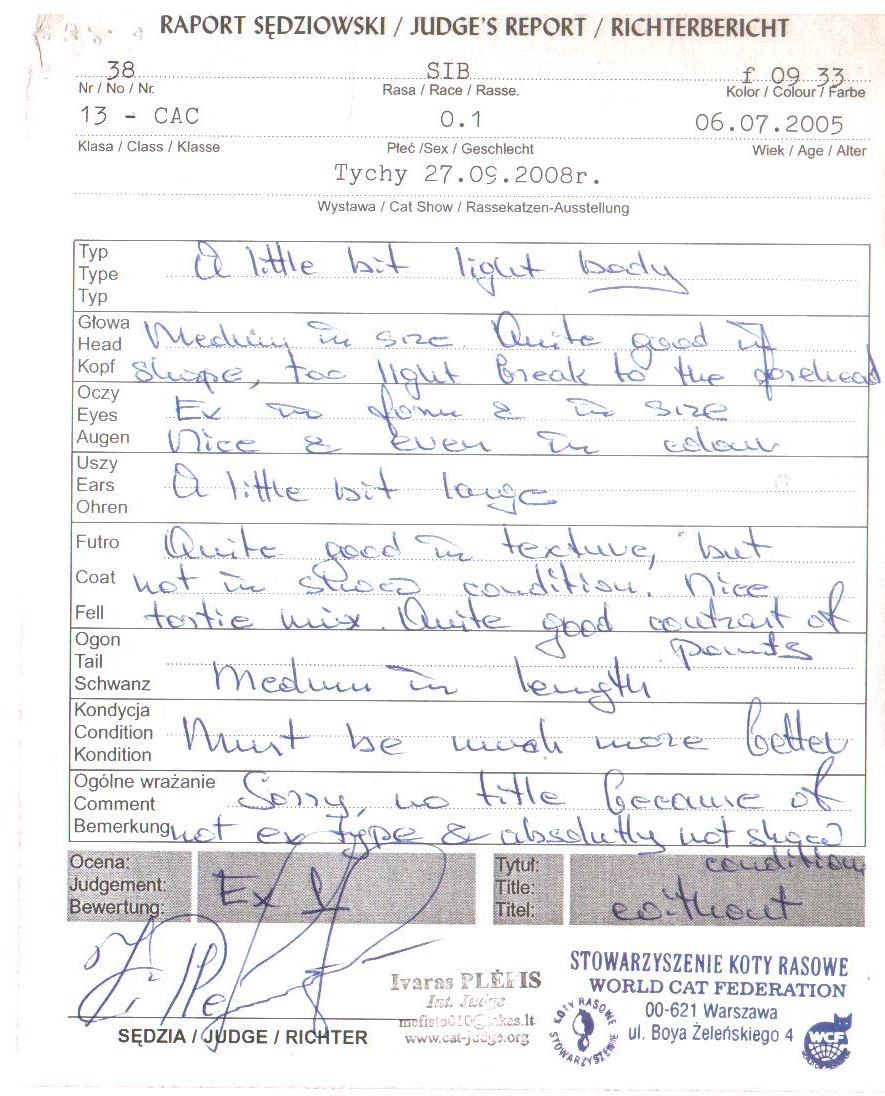 RAPORT SĘDZIOWSKI / JUDGE'S REPORT / RICHTERBERICHT
38 SIB f 09 33
Nr / No / Nr. Rasa / Race / Rasse. Kolor / Colour / Farbe
13 - CAC 0.1 06.07.2005
Klasa / Class / Klasse Płeć /Sex / Geschlecht Wiek / Age / Alter
Tychy 27.09.2008r.
Wystawa / Cat Show / Rassekatzen-Ausstellung
Typ
Type
Typ
A little bit light body
Głowa
Head
Kopf
Medium in size. Quite good in
shape, too light break to the forehead
Oczy
Eyes
Augen
Ex in form & in size
Nice & even in colour
Uszy
Ears
Ohren
A little bit large
Futro
Coat
Fell
Quite good in texture, but
not in show condition. Nice
tortie mix. Quite good contrast of
points
Ogon
Tail
Schwanz
Medium in length
Kondycja
Condition
Kondition
Must be much more better
Ogólne wrażanie
Comment
Bemerkung
Sorry, no title because of
not ex type & absolutly not show
condition
Ocena:
Judgement:
Bewertung:
Ex 1
Tytuł:
Title:
Titel:
without
Ivaras PLĖFIS
Int. Judge
www.cat-judge.org
SĘDZIA / JUDGE / RICHTER
STOWARZYSZENIE KOTY RASOWE
WORLD CAT FEDERATION
00-621 Warszawa
ul. Boya Żeleńskiego 4
KOTY RASOWE
STOWARZYSZENIE
WCF